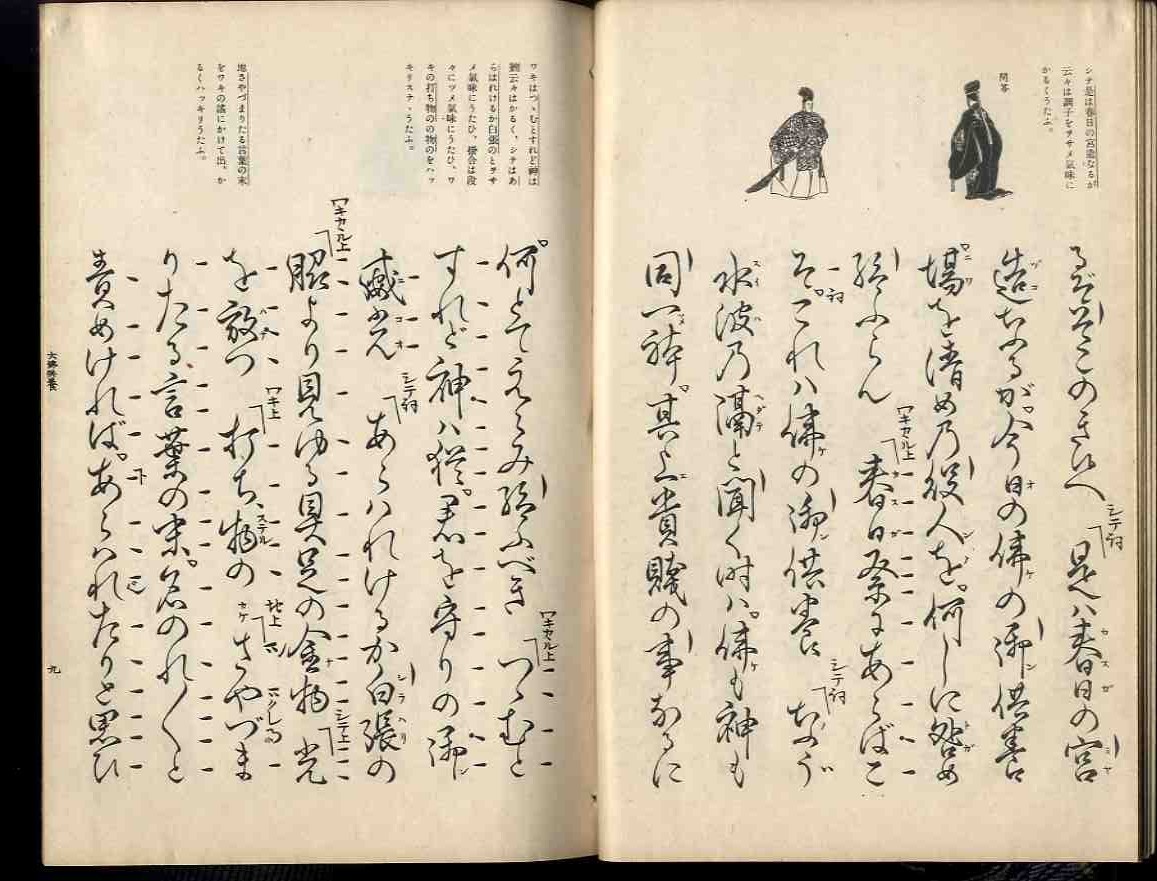 シテ是は春日の宮造なるが
云々は調子をヲサメ氣味に
かるくうたふ。
問答
るぞそこのき候へ シテ詞 是ハ春日の宮
造なるが。今日の佛の御供養
場を清め乃役人を。何しに咎め
給ふらん ワキカヽル上 春日祭にあらばこ
そ。詞 これハ佛の御供養 シテ詞
水波乃隔と聞く時ハ。佛も神も
同一躰。其上貴賤の事なるに
ワキはつゝむとすれど神は
猶云々はかるく、シテはあ
らはれけるか白張のとヲサ
メ氣味にうたひ、掛合は段
々にツメ氣味にうたひ、ワ
キの打ち物のの物のをハッ
キリステヽうたふ。
地さやづまりたる言葉の末
をワキの謠にかけて出、か
るくハッキリうたふ。
何とてえらみ給ふべき ワキカヽル上 つゝむと
すれど神ハ猶。君を守りの御
威光 シテ詞 あらハれけるか白張の
ワキカヽル上 脇より見ゆる具足の金物 シテ上 光
を放つ ワキ上 打ち物の 地上 さやづま
りたる言葉の末。名のれ〳〵と
責めければ。あらハれたりと思ひ
大佛供養
九